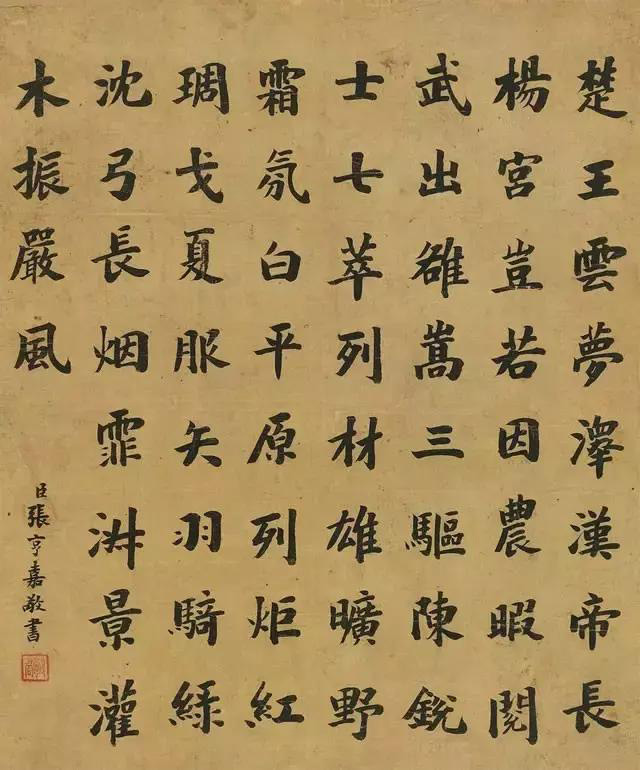 楚王雲夢澤漢帝長
楊宮豈若因農暇閱
武出雒嵩三驅陳銳
士七萃列材雄曠野
霜氛白平原列炬紅
琱戈夏服矢羽騎綠
沈弓長烟霏淋景灌
木振嚴風
臣張亨嘉敬書